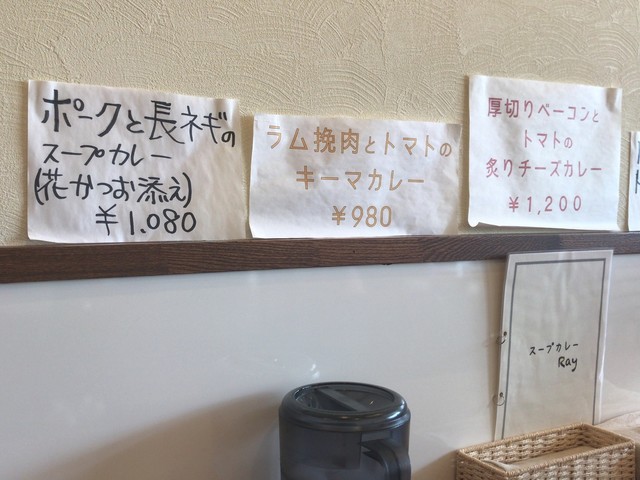 ポークと長ネギの
スープカレー
(花かつお添え)
¥1.080
ラム挽肉とトマトの
キーマカレー
¥980
厚切りベーコンと
トマトの
炙りチーズカレー
¥1,200
スープカレー
Ray